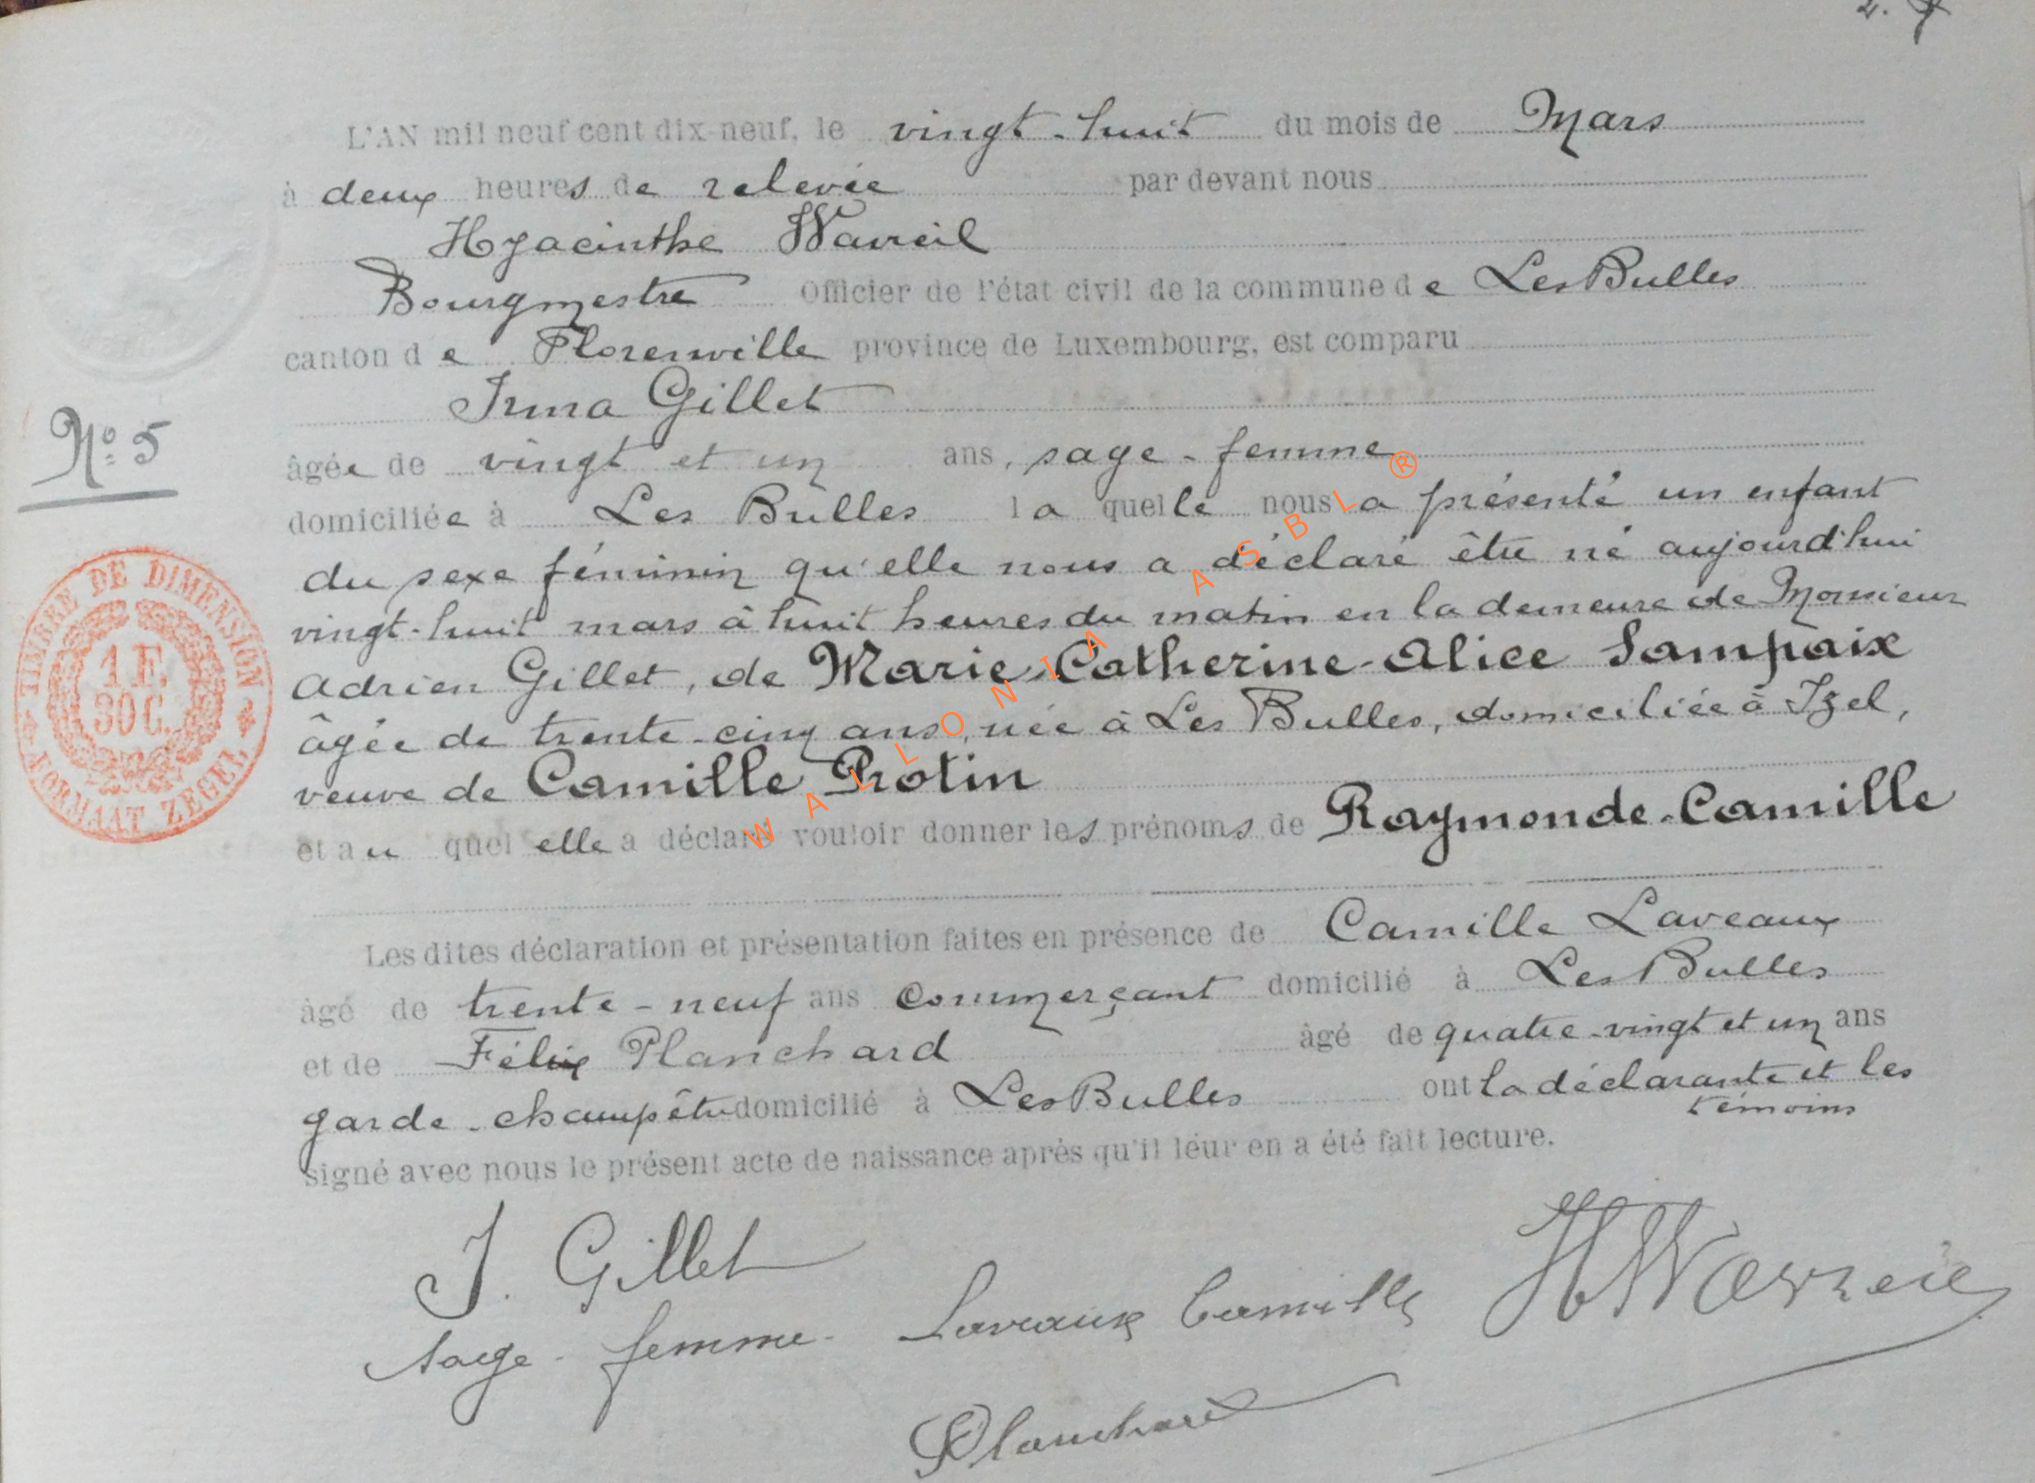 L'AN mil neuf cent dix-neuf, le vingt-huit du mois de Mars
à deux heures de relevée par devant nous
Hyacinthe Wavreil
Bourgmestre Officier de l'état civil de la commune de Les Bulles
canton de Florenville province de Luxembourg, est comparu
Irma Gillet
N° 5
âgée de vingt et un ans, sage-femme
domiciliée à Les Bulles la quelle nous a présenté un enfant
du sexe féminin qu'elle nous a déclaré être né aujourd'hui
vingt-huit mars à huit heures du matin en la demeure de Monsieur
Adrien Gillet, de Marie-Catherine-Alice Sampaix
âgée de trente-cinq ans, née à Les Bulles, domiciliée à Izel,
veuve de Camille Protin
et au quel elle a déclaré vouloir donner les prénoms de Raymonde-Camille
TIMBRE DE DIMENSION
1 F.
30 C.
FORMAAT ZEGEL
WALLONIA ASBL ®
Les dites déclaration et présentation faites en présence de Camille Laveaux
âgé de trente-neuf ans commerçant domicilié à Les Bulles
et de Félix Planchard âgé de quatre-vingt et un ans
garde-champêtre domicilié à Les Bulles ont la déclarante et les
témoins
signé avec nous le présent acte de naissance après qu'il leur en a été fait lecture.
J. Gillet
sage-femme. Laveaux Camille H Wavreil
Planchard